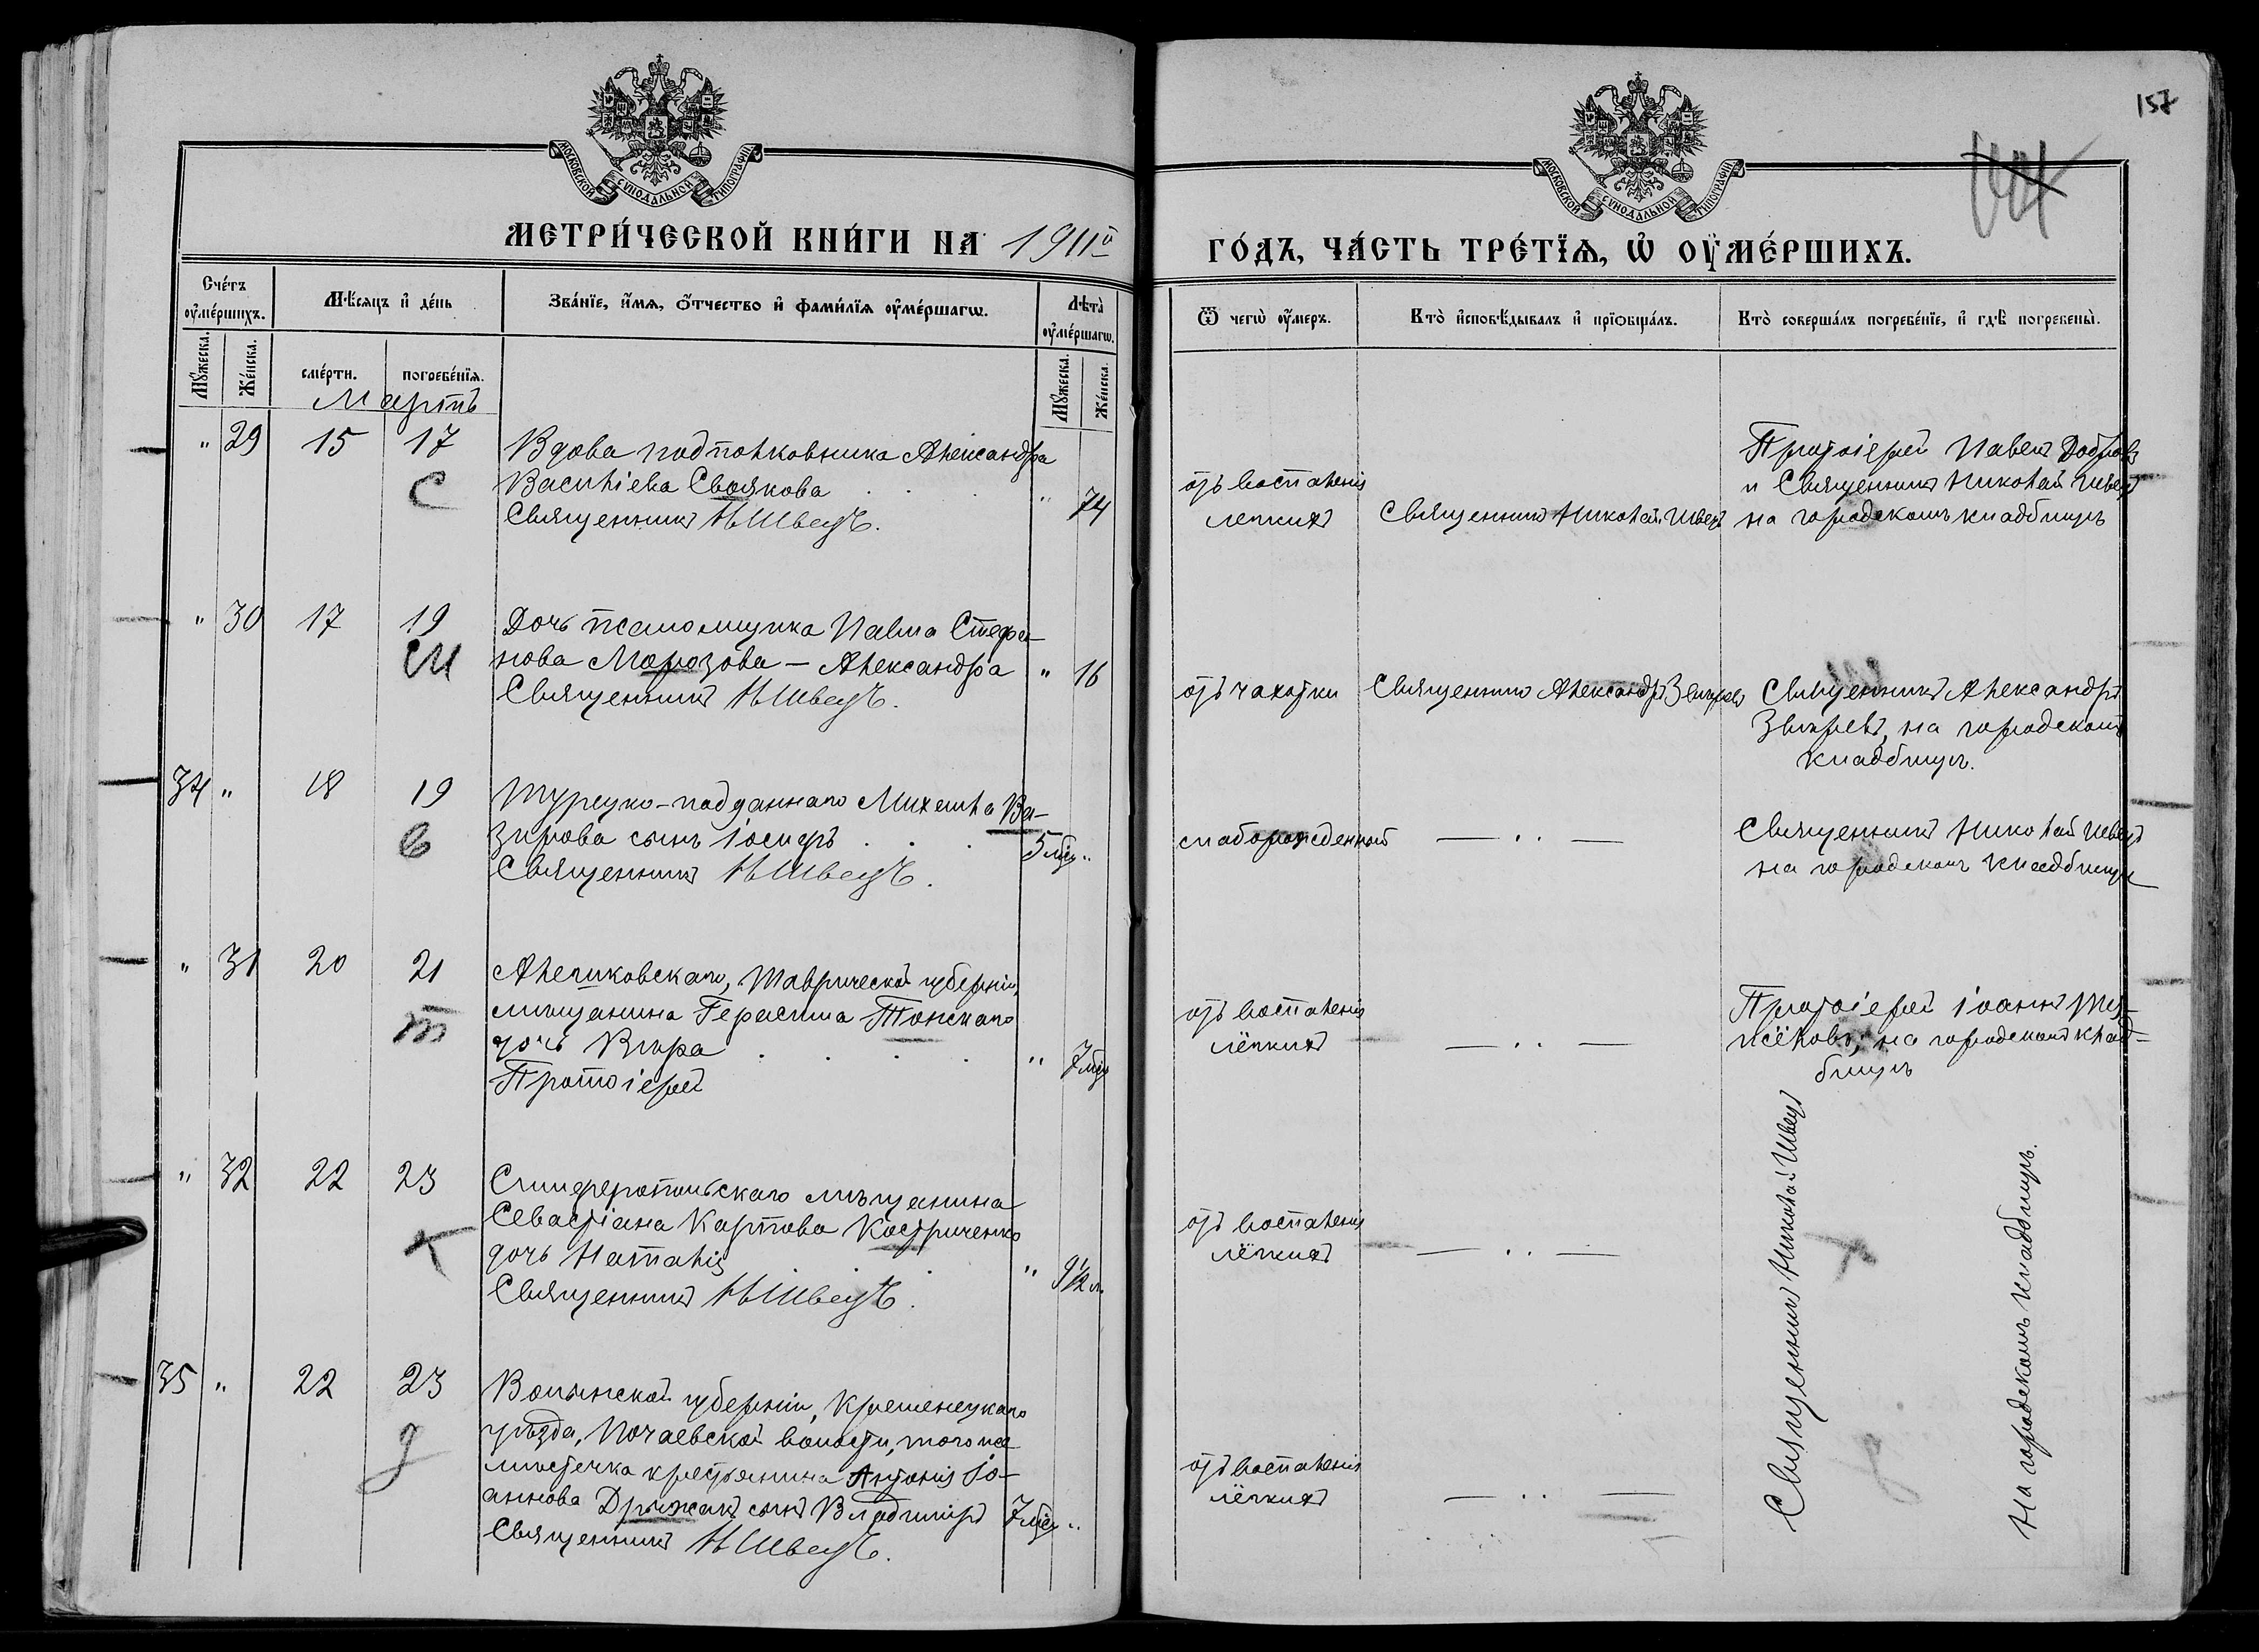 157
МОСКОВСКОЙ СУНОДАЛЬНОЙ ТИПОГРАФІИ
МОСКОВСКОЙ СУНОДАЛЬНОЙ ТИПОГРАФІИ
МЕТРИ́ЧЕСКОЙ КНИ́ГИ НА 1911й
ГО́ДЪ, ЧА́СТЬ ТРЕ́ТЇѦ, Ѡ҆ ОУ҆МЕ́РШИХЪ.
Сче́тъ оу҆ме́ршихъ.
Мꙋ́жеска.
Же́нска.
Мѣ́сяцъ и҆ де́нь
сме́рти.
погребе́нїя.
Зва́нїе, и҆́мя, ѻ҆́тчество и҆ фами́лїя оу҆ме́ршагѡ.
Лѣта̀ оу҆ме́ршагѡ.
Мꙋ́жеска.
Же́нска.
Ѿ чегѡ̀ оу҆́меръ.
Кто̀ и҆сповѣ́дывалъ и҆ прїѻбща́лъ.
Кто̀ соверша́лъ погребе́нїе, и҆ гдѣ̀ погребены̀.
Мартъ
" 29 15 17
С
Вдова подполковника Александра
Васильева Своякова . . . " 74
Священникъ Н Швецъ.
отъ воспаленія
легкихъ
Священникъ Николай Швецъ
Протоіерей Павелъ Добровъ
и Священникъ Николай Швецъ
на городскомъ кладбищѣ
" 30 17 19
М
Дочь псаломщика Павла Стефа-
нова Морозова — Александра " 16
Священникъ Н Швецъ.
отъ чахотки
Священникъ Александръ Звѣревъ
Священникъ Александръ
Звѣревъ, на городскомъ
кладбищѣ.
34 " 18 19
В
Турецко-подданнаго Михаила Ва-
зирова сынъ Іосифъ . . . 5 мѣс "
Священникъ Н Швецъ.
слаборожденный
— . . —
Священникъ Николай Швецъ
на городскомъ кладбищѣ
" 31 20 21
Т
Алешковскаго, Таврической губерніи,
мѣщанина Герасима Тонскаго
дочь Вѣра . . . . " 7 мѣс
Протоіерей
отъ воспаленія
лёгкихъ
— . . —
Протоіерей Іоаннъ
на городскомъ клад-
бищѣ
" 32 22 23
К
Симферопольскаго мѣщанина
Севастіана Карпова Костриченко
дочь Наталія . . . " 9½ м.
Священникъ Н Швецъ.
отъ воспаленія
лёгкихъ
— . . —
35 " 22 23
Д
Волынской губерніи, Кременецкаго
уѣзда, Почаевской волости, того же
мѣстечка крестьянина Антонія Іо-
аннова Дрыжакъ сынъ Владиміръ 7 мѣс "
Священникъ Н Швецъ.
отъ воспаленія
лёгкихъ
— . . —
Священникъ Николай Швецъ
На городскомъ кладбищѣ.